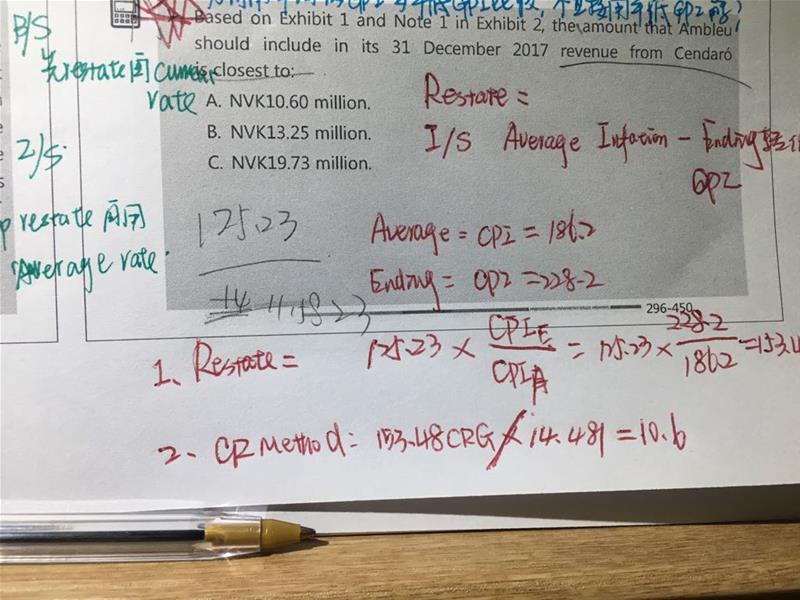 B/S
先restate用current
rate
I/S
restate 再用
average rate
Based on Exhibit 1 and Note 1 in Exhibit 2, the amount that Ambleu
should include in its 31 December 2017 revenue from Cendaró
is closest to:
A. NVK10.60 million.
B. NVK13.25 million.
C. NVK19.73 million.
Restate =
I/S Average Infation - Ending
CPI
125.23
14 11.5823
Average = CPI = 186.2
Ending = CPI = 228.2
296-450
1. Restate = 125.23 × CPIE / CPIA = 125.23 × 228.2 / 186.2 = 153.4
2. CR Method: 153.48 CRG / 14.481 = 10.6